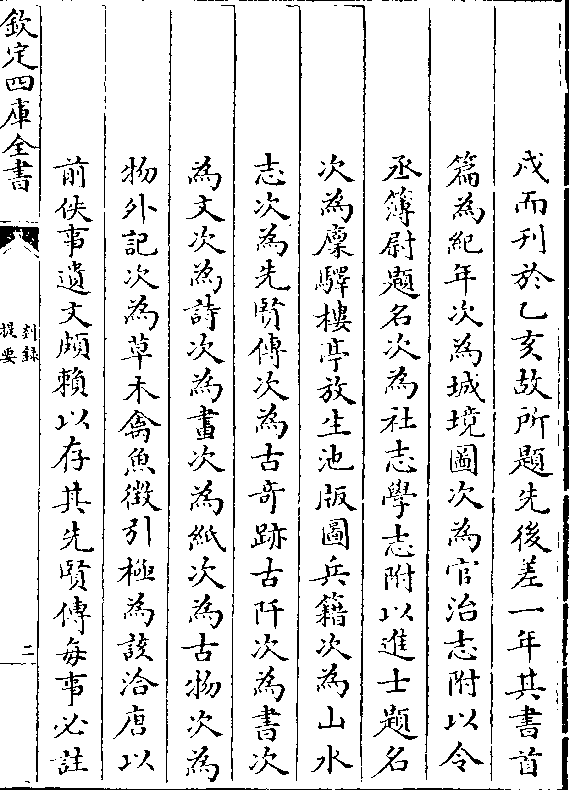 戌而刊於乙亥故所題先後差一年其書首
篇為紀年次為城境圖次為官治志附以令
丞簿尉題名次為社志學志附以進士題名
次為廩驛樓亭放生池版圖兵籍次為山水
志次為先賢傳次為古奇跡古阡次為書次
為文次為詩次為畫次為紙次為古物次為
物外記次為草木禽魚徵引極為該洽唐以
前佚事遺文頗賴以存其先賢傳每事必註
欽定四庫全書
剡錄
提要
二